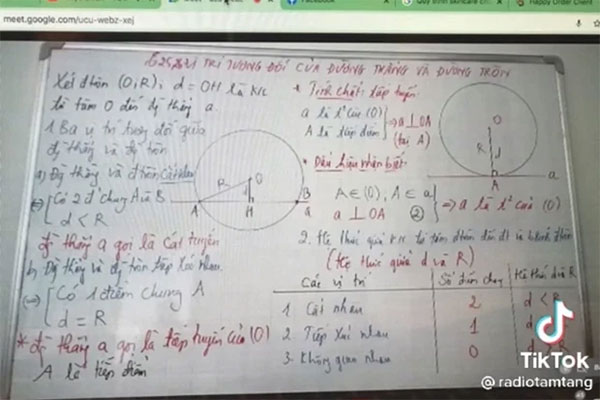 meet.google.com/ucu-webz-xej
Facebook
Happy Order Client
VỊ TRÍ TƯƠNG ĐỐI CỦA ĐƯỜNG THẲNG VÀ ĐƯỜNG TRÒN
Xét đtròn (O,R), d = OH là k/c
từ tâm O đến đg thẳng a.
1. Ba vị trí tương đối giữa
đg thẳng và đg tròn
a) Đg thẳng và đtròn cắt nhau
⇔ { Có 2 đ' chung A và B
d < R
đg thẳng a gọi là cát tuyến
b) Đg thẳng và đg tròn tiếp xúc nhau
⇔ { Có 1 điểm chung A
d = R
* đg thẳng a gọi là tiếp tuyến của (O)
A là tiếp điểm
R
O
A
H
B
a
* Tính chất tiếp tuyến
a là t² của (O)
A là tiếp điểm
} ⇒ a ⊥ OA
(tại A)
* Dấu hiệu nhận biết
A ∈ (O), A ∈ a
a ⊥ OA
} ⇒ a là t² của (O)
O
R
A
a
2. Hệ thức giữa k/c từ tâm đtròn đến đt và b.kính đtròn
(Hệ thức giữa d và R)
Các vị trí
Số điểm chung
Hệ thức d và R
1. Cắt nhau
2
d < R
2. Tiếp xúc nhau
1
d
3. Không giao nhau
0
R
TikTok
@radiotamtang